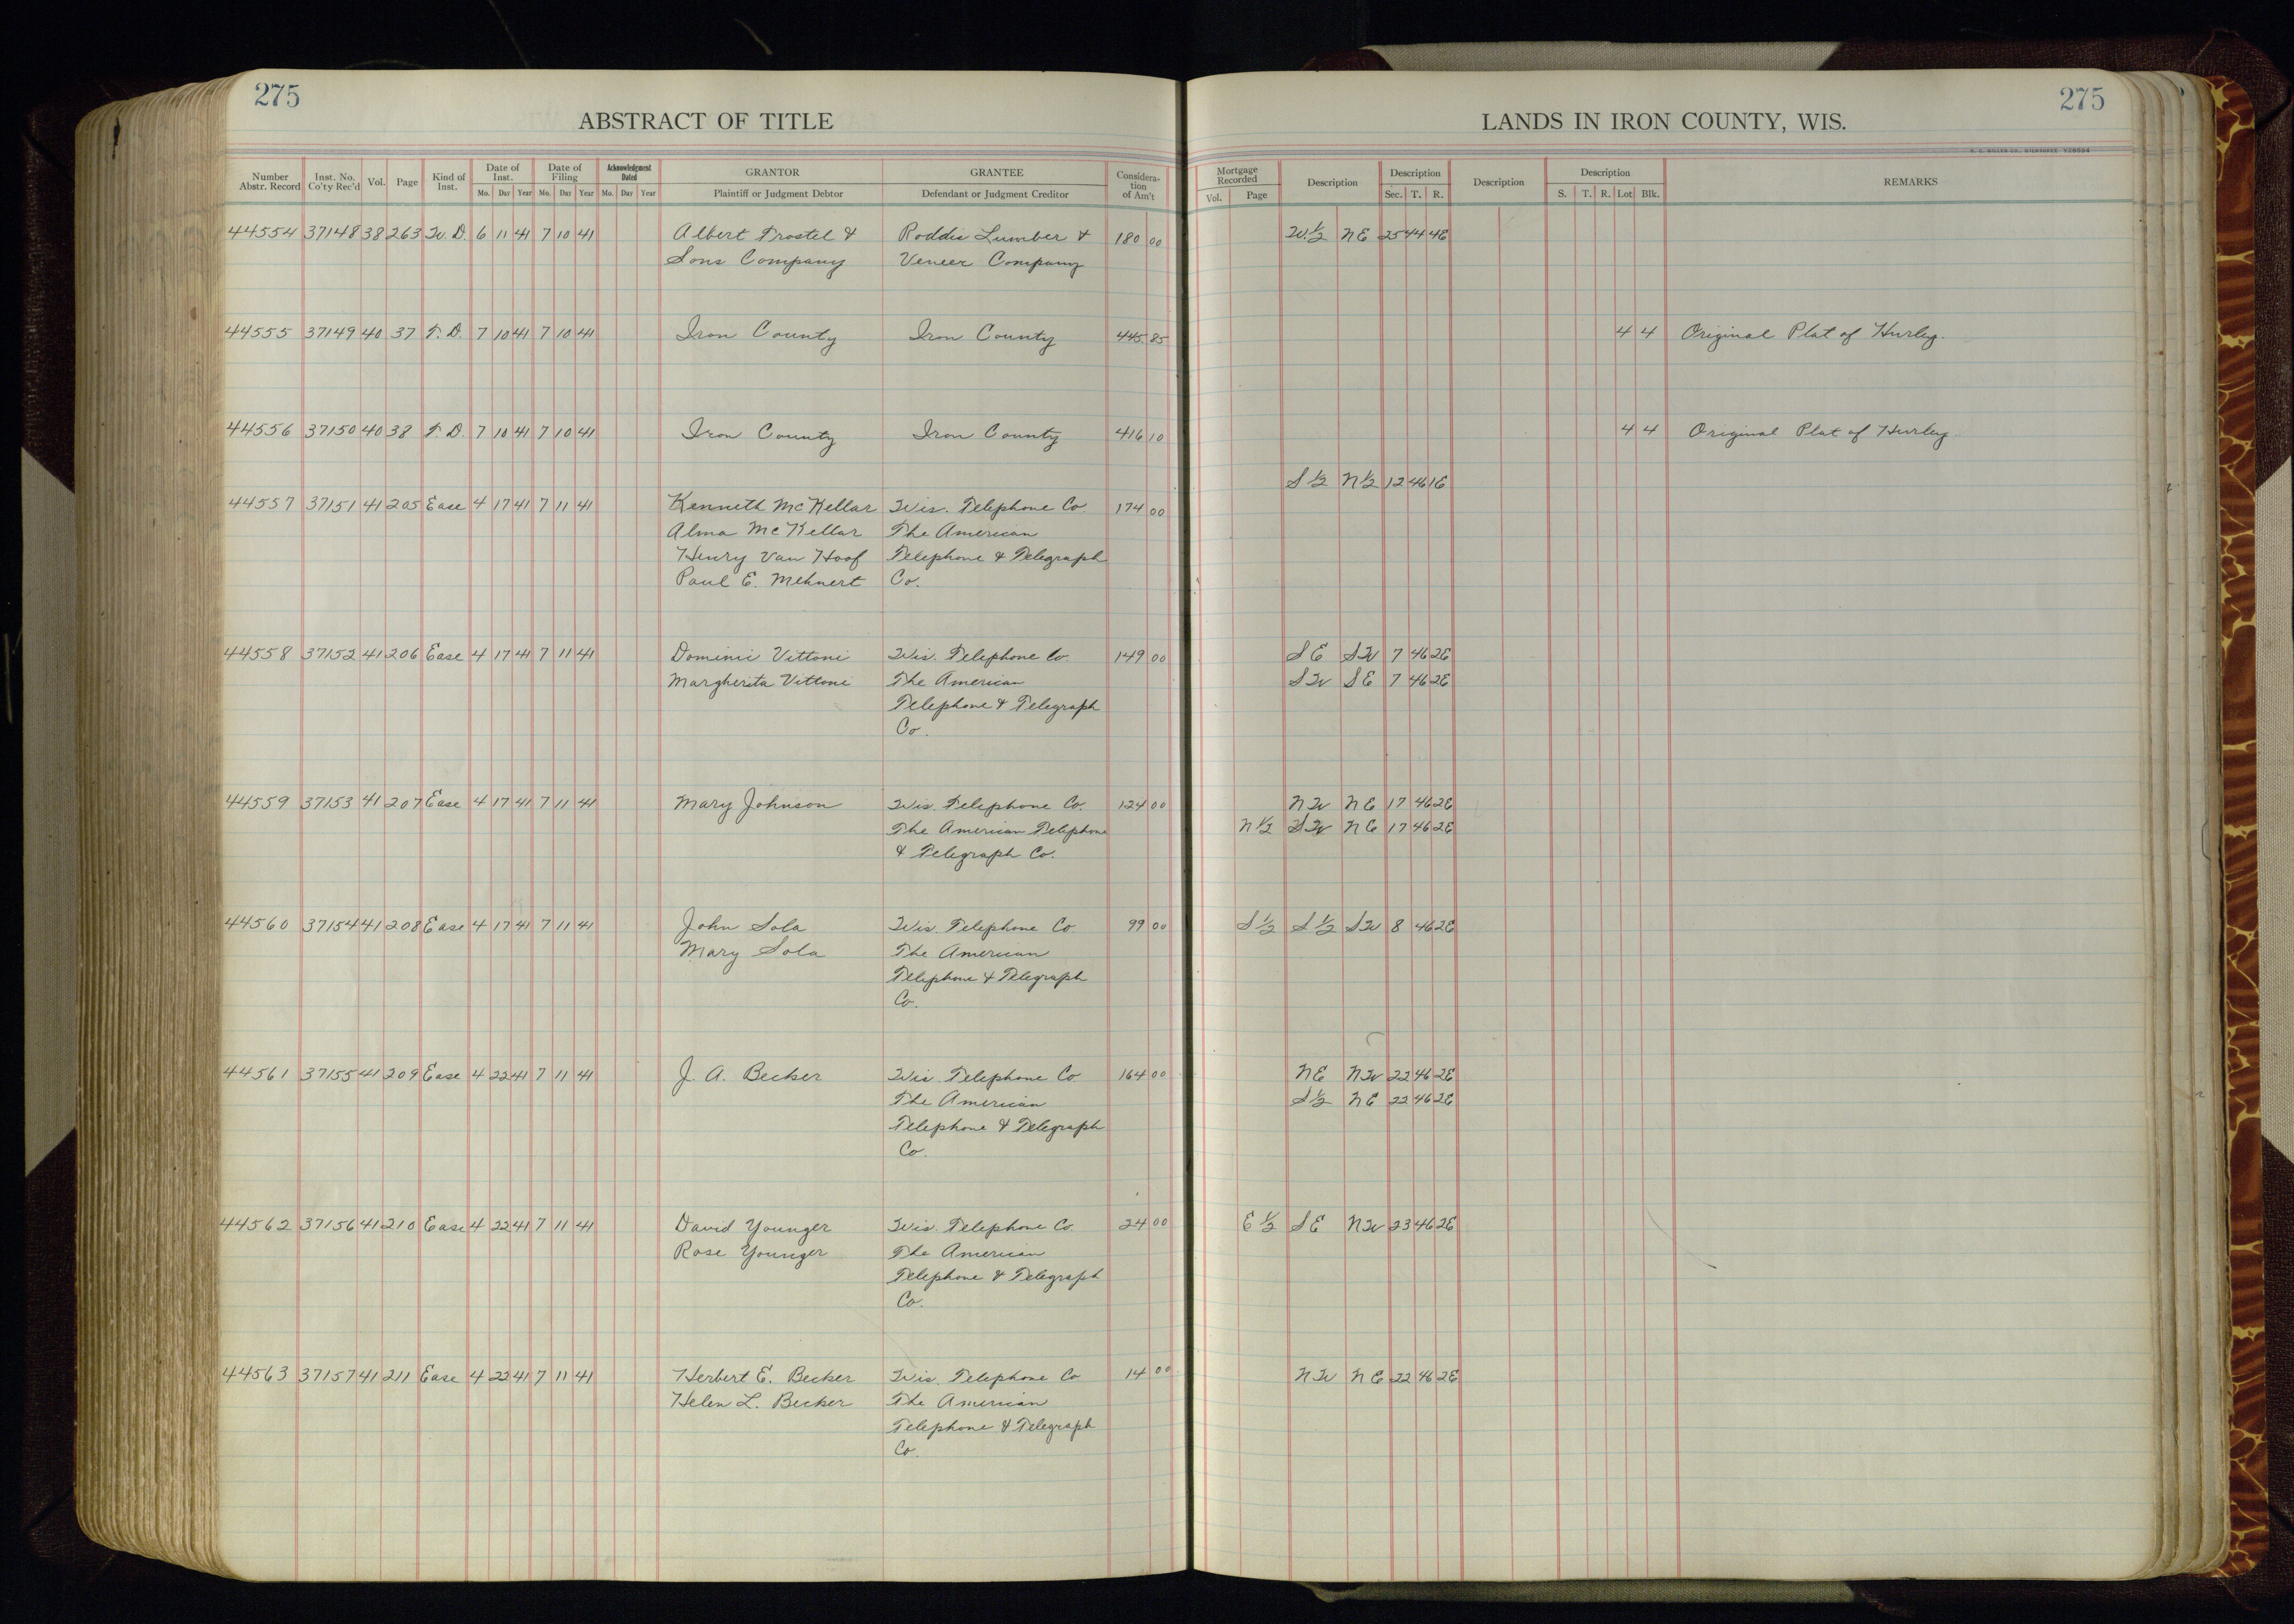 275
ABSTRACT OF TITLE
LANDS IN IRON COUNTY, WIS.
275
Number Abstr. Record Inst. No. Co'ty Rec'd Vol. Page Kind of Inst. Date of Inst. Mo. Day Year Date of Filing Mo. Day Year Acknowledgment Dated Mo. Day Year GRANTOR Plaintiff or Judgment Debtor GRANTEE Defendant or Judgment Creditor Considera-tion of Am't Mortgage Recorded Vol. Page Description Description Sec. T. R. Description Description S. T. R. Lot Blk. REMARKS
44554 37148 38 263 W. D. 6 11 41 7 10 41 Albert Trostel & Roddis Lumber & 180 00 W. ½ NE 25 44 4E
Sons Company Veneer Company
44555 37149 40 37 T. D. 7 10 41 7 10 41 Iron County Iron County 445 85 4 4 Original Plat of Hurley.
44556 37150 40 38 T. D. 7 10 41 7 10 41 Iron County Iron County 416 10 4 4 Original Plat of Hurley
S ½ N ½ 12 46 1E
44557 37151 41 205 Ease 4 17 41 7 11 41 Kenneth McKellar Wis. Telephone Co. 174 00
Alma McKellar The American
Henry Van Hoof Telephone & Telegraph
Paul E. Mehnert Co.
44558 37152 41 206 Ease 4 17 41 7 11 41 Dominic Vittoni Wis. Telephone Co. 149 00 SE SW 7 46 2E
Margherita Vittoni The American SW SE 7 46 2E
Telephone & Telegraph
Co.
44559 37153 41 207 Ease 4 17 41 7 11 41 Mary Johnson Wis. Telephone Co. 124 00 NW NE 17 46 2E
The American Telephone N ½ SW NE 17 46 2E
& Telegraph Co.
44560 37154 41 208 Ease 4 17 41 7 11 41 John Sola Wis. Telephone Co. 99 00 S ½ S ½ SW 8 46 2E
Mary Sola The American
Telephone & Telegraph
Co.
44561 37155 41 209 Ease 4 22 41 7 11 41 J. A. Becker Wis. Telephone Co. 164 00 NE NW 22 46 2E
The American S ½ NE 22 46 2E
Telephone & Telegraph
Co.
44562 37156 41 210 Ease 4 22 41 7 11 41 David Younger Wis. Telephone Co. 24 00 E ½ SE NW 23 46 2E
Rose Younger The American
Telephone & Telegraph
Co.
44563 37157 41 211 Ease 4 22 41 7 11 41 Herbert E. Becker Wis. Telephone Co 14 00 NW NE 22 46 2E
Helen L. Becker The American
Telephone & Telegraph
Co.